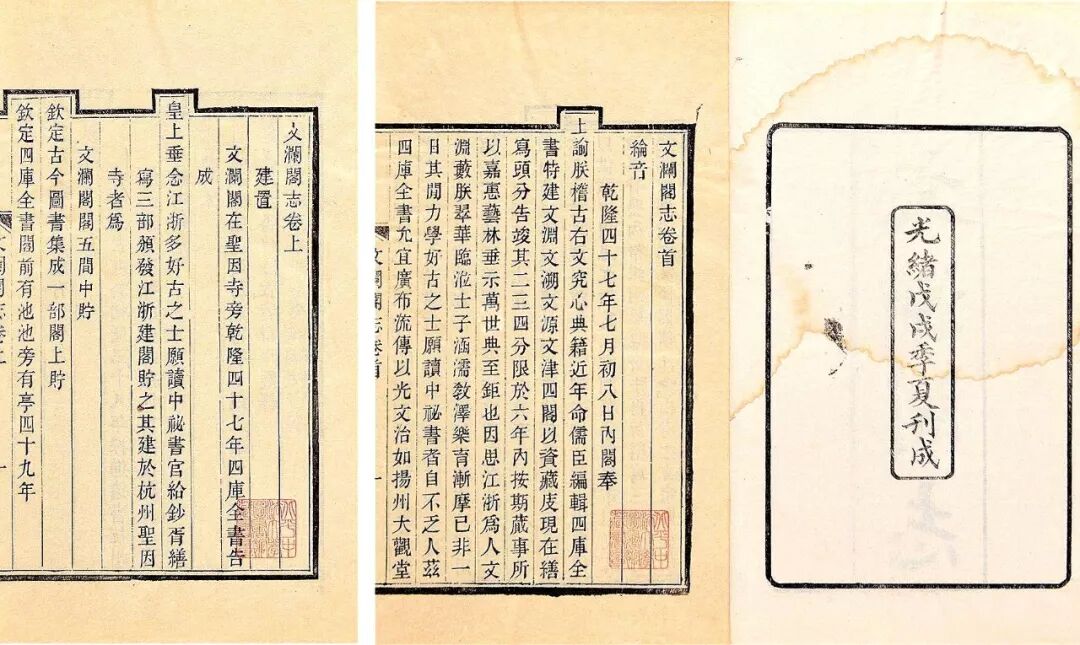 光緒戊戌季夏刊成
文瀾閣志卷首
綸音
乾隆四十七年七月初八日內閣奉
上諭朕稽古右文究心典籍近年命儒臣編輯四庫全
書特建文淵文溯文源文津四閣以資藏庋現在繕
寫頭分告竣其二三四分限於六年內按期蕆事所
以嘉惠藝林垂示萬世典至鉅也因思江浙爲人文
淵藪朕翠華臨涖士子涵濡教澤樂育漸摩已非一
日其閒力學好古之士願讀中祕書者自不乏人茲
四庫全書允宜廣布流傳以光文治如揚州大觀堂
文瀾閣志卷首
一
文瀾閣志卷上
建置
文瀾閣在聖因寺旁乾隆四十七年四庫全書告
成
皇上垂念江浙多好古之士願讀中祕書官給鈔胥繕
寫三部頒發江浙建閣貯之其建於杭州聖因
寺者爲
文瀾閣閣五間中貯
欽定古今圖書集成一部閣上貯
欽定四庫全書閣前有池池旁有亭四十九年
文瀾閣志卷上
一